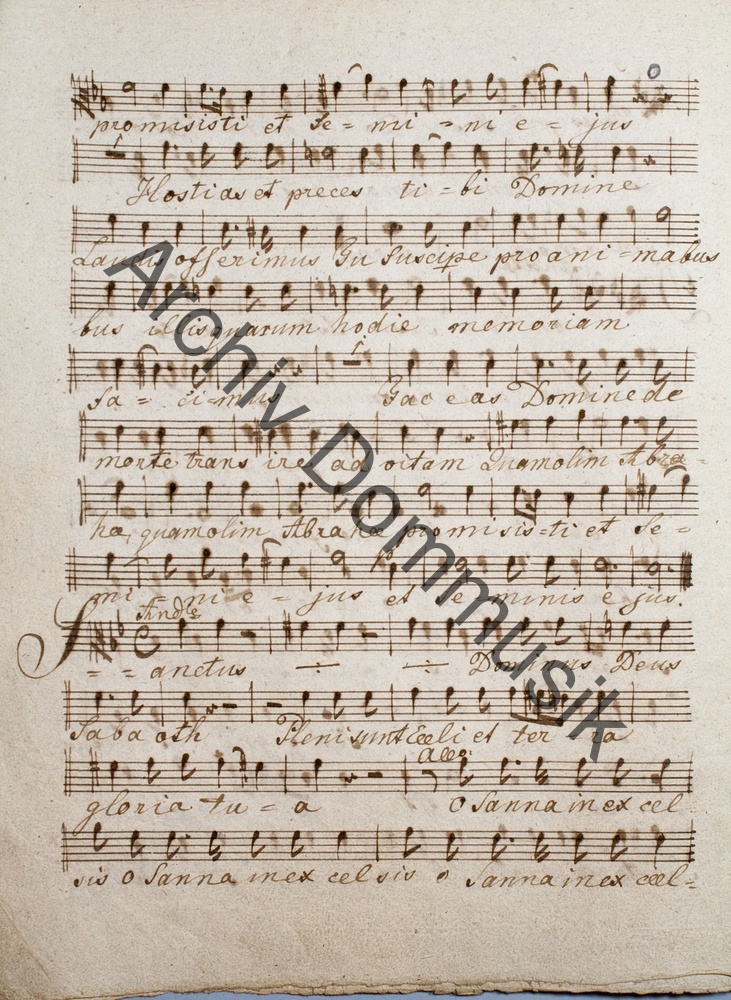 promisisti et Se = mi = ni e = jus
Hostias et preces ti = bi Domine
Laudis offerimus Tu Suscipe pro ani = mabus
bus illis quarum hodie memoriam
fa = ci = mus Fac eas Domine de
morte trans ire ad vitam Quam olim Abra =
hæ, quam olim Abrahæ promisis = ti et Se =
mi ni e = jus et Se minis e jus.
Andte
S = = anctus Dominus Deus
Sabaoth Pleni sunt Cœli et ter ra
allo:
gloria tu = a o Sanna in ex cel
sis o Sanna in ex cel sis o Sanna in ex cœl =
Archiv Dommusik